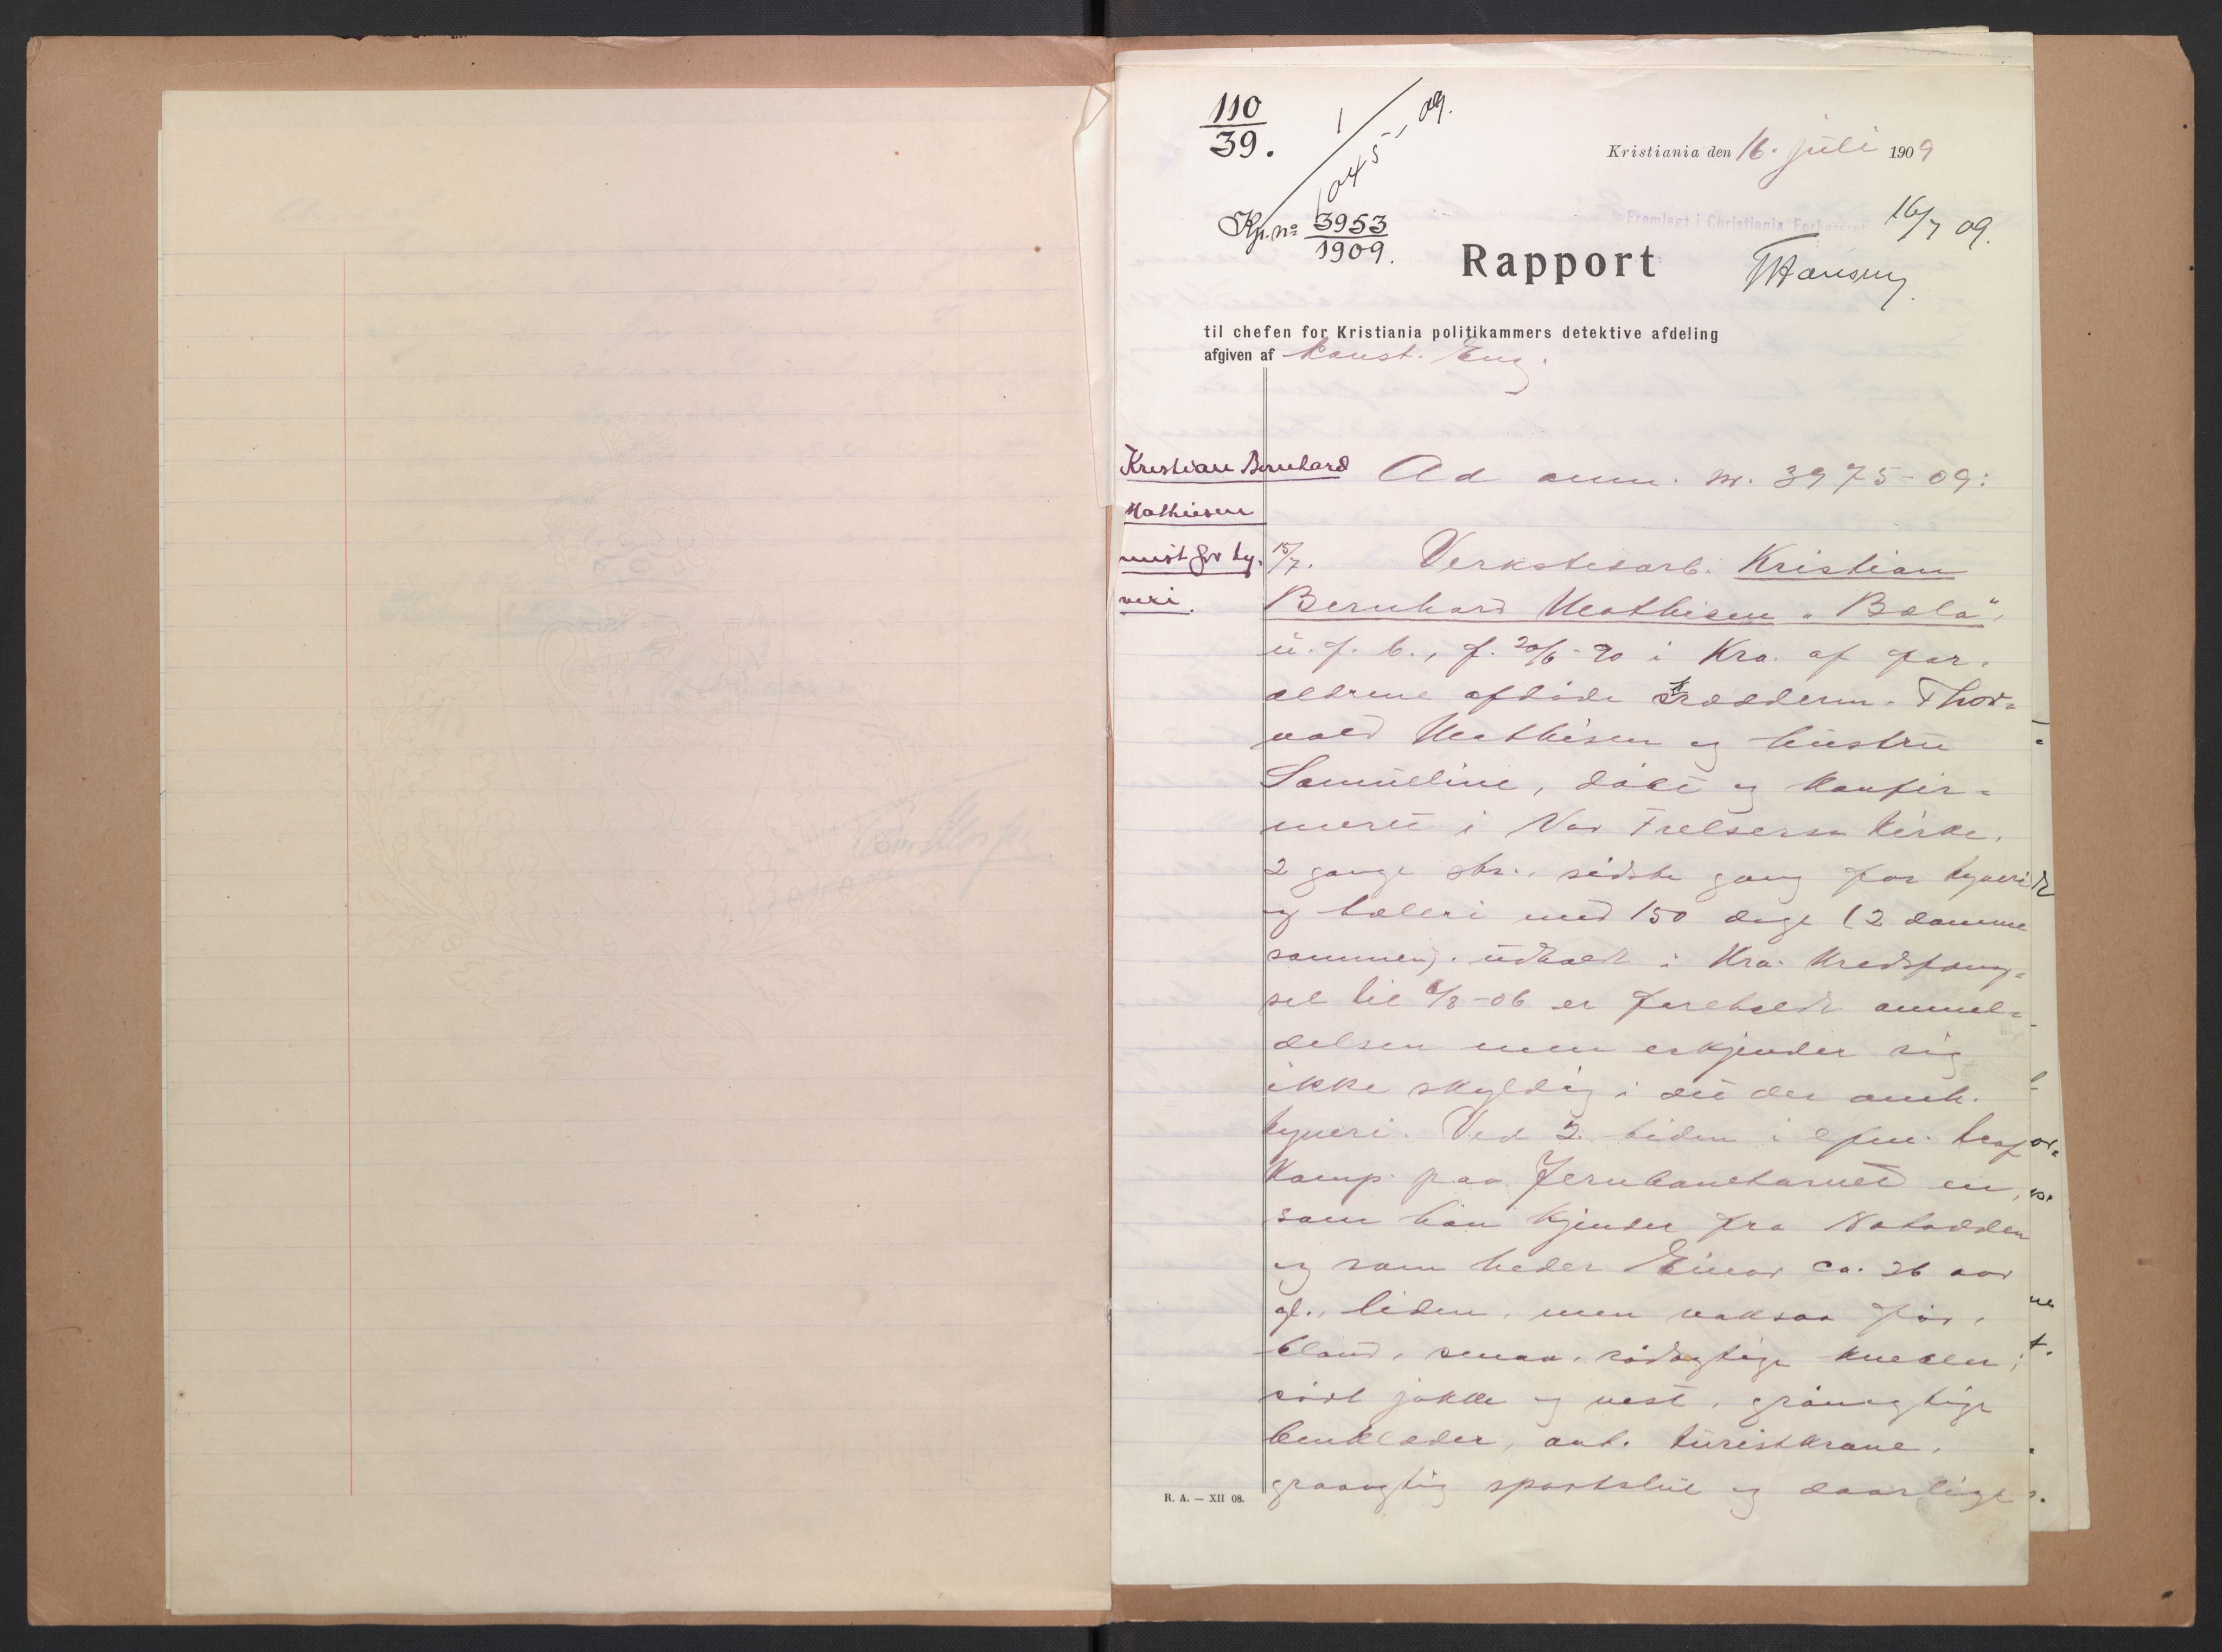 110
39.
1
1045-09.
Kristiania den 16. juli 1909
Kp. nº 3953
1909.
Fremlagt i Christiania Forhørsret 16/7 09.
THansen
Rapport
til chefen for Kristiania politikammers detektive afdeling
afgiven af Konst. Eng.
Kristian Bernhard
Mathiesen
mist for ty-
veri.
Ad anm. nr. 3975-09:
15/7. Verkstedarb. Kristian
Bernhard Mathisen "Bola",
u. f. b., f. 20/6-90 i Kra. af for-
ældrene afdøde skrædderm. Thor-
vald Mathisen og hustru
Samuelline, døbt og konfir-
meret i Vor Frelsers Kirke.
2 gange str., sidste gang for tyveri
og hæleri med 150 dage (2 domme
sammen), udholdt i Kra. Kredsfæng-
sel til /8-06 er foreholdt anmel-
delsen men erkjender sig
ikke skyldig i det der anm.
tyveri. Ved 2 tiden i efm. traf
Komp. paa Jernbanetorvet en,
som han kjender fra Notodden
og som heder Einar ca. 26 aar
gl., liden, men voksaa før,
blond, smaa, rødagtige knebler;
sort jakke og vest, grønagtige
benklæder, ant. turistkrave,
graaagtig sportslue og daarlige
R. A. — XII 08.